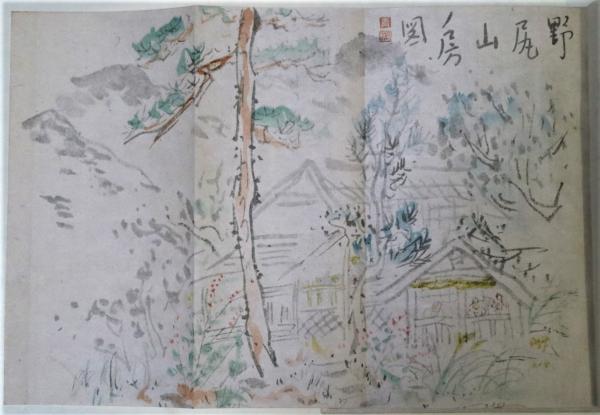 野尻山房図